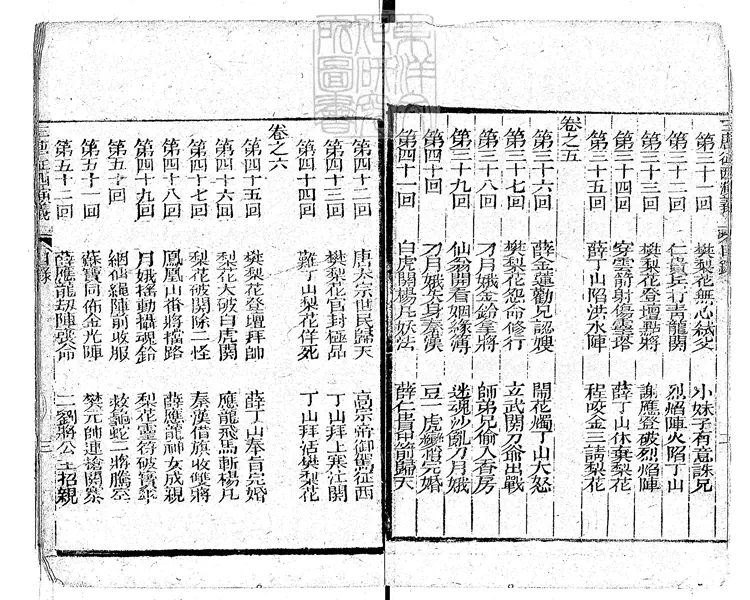 三唐征西演義 目錄
第三十一回 樊梨花無心弒父 小妹子有意誅兄
第三十二回 仁貴兵行青龍關 烈焰陣火陷丁山
第三十三回 樊梨花登壇點將 謝應登破烈焰陣
第三十四回 穿雲箭射傷靈塔 薛丁山休棄梨花
第三十五回 薛丁山陷洪水陣 程咬金三請梨花
卷之五
第三十六回 薛金蓮勸兄認嫂 鬧花燭丁山大怒
第三十七回 樊梨花忿命修行 玄武關刀爺出戰
第三十八回 刁月娥金鈴拿將 師弟兄偷入香房
第三十九回 仙翁開看姻緣簿 迷魂沙亂刀月娥
第四十回 刁月娥失身秦漢 豆一虎變 完婚
第四十一回 白虎關楊凡妖法 薛仁貴甲箭歸天
第四十二回 唐太宗世民歸天 高宗帝御駕征西
第四十三回 樊梨花官封極品 丁山拜上寒江關
第四十四回 難丁山梨花佯死 丁山拜活樊梨花
卷之六
第四十五回 樊梨花登壇拜帥 薛丁山奉旨完婚
第四十六回 梨花大破白虎關 應龍飛馬斬楊凡
第四十七回 梨花破關除二怪 秦漢借旗收雙將
第四十八回 鳳凰山番將擋路 薛應龍神女成親
第四十九回 月娥搖動攝魂鈴 梨花靈符破寶
第五十回 綑仙繩陣前收服 救龜蛇二將騰空
第五十一回 蘇寶同佈金光陣 樊元帥連搶關寨
第五十二回 薛應龍劫陣喪命 二劉將公主招親
三唐征西演義 目錄 三